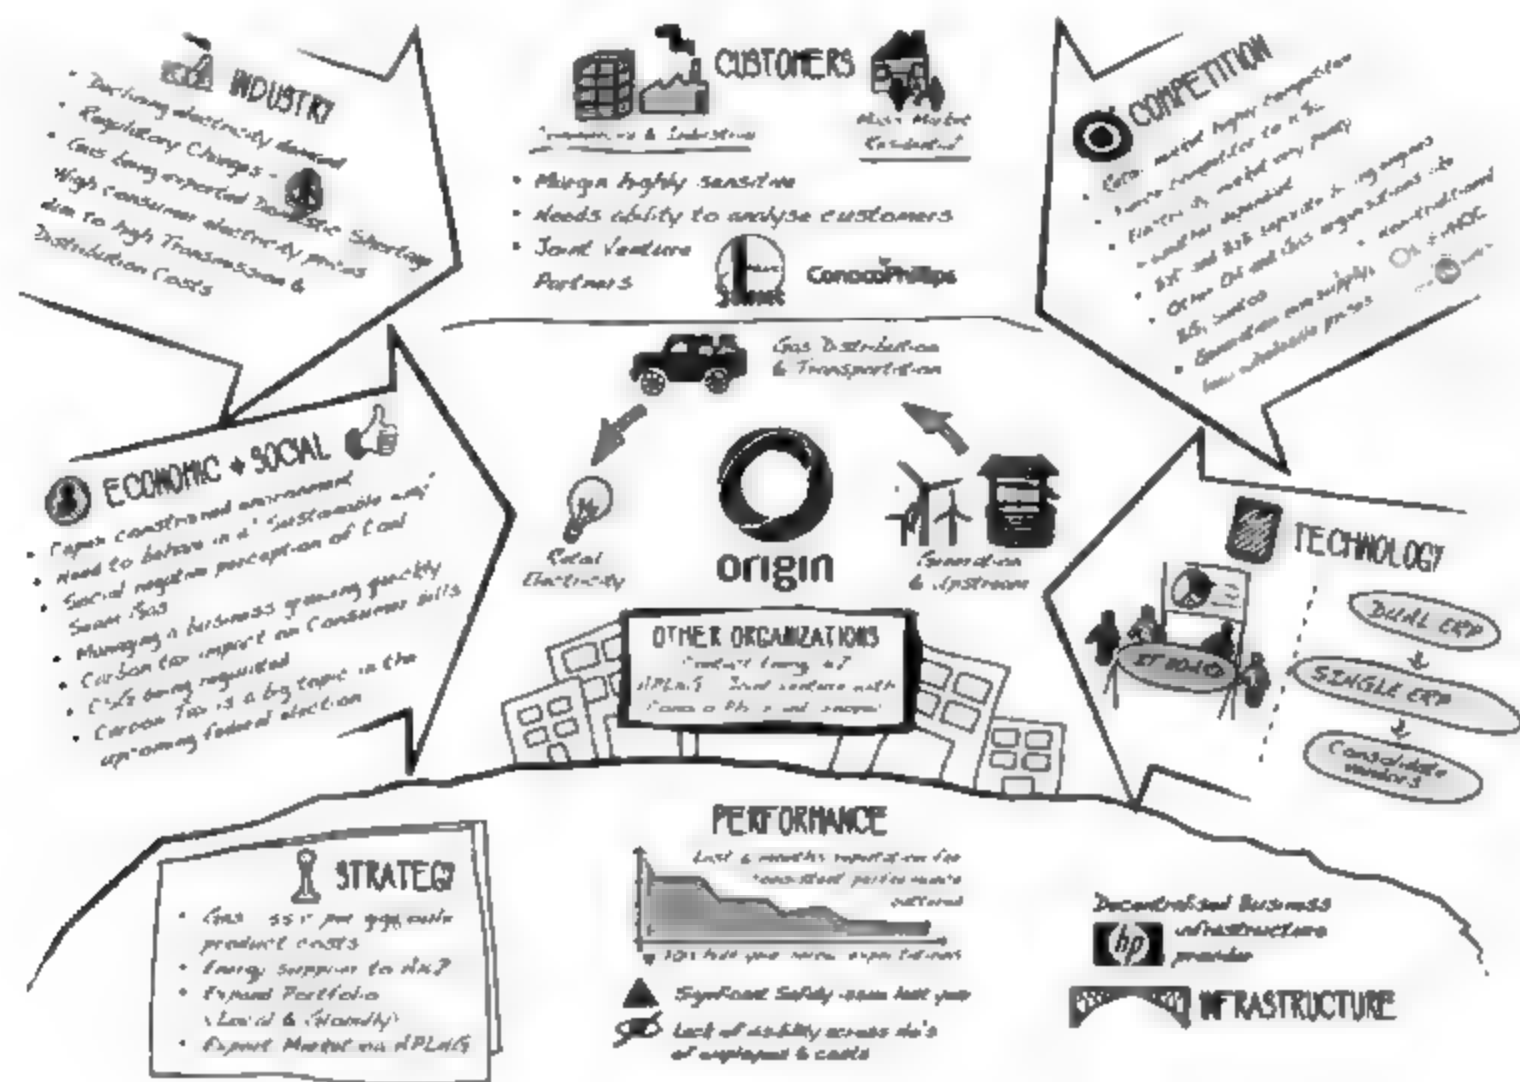 INDUSTRY
• Declining electricity demand
• Regulatory Changes -
• Gas being exported Domestic Shortage
High consumer electricity prices
due to high Transmission &
Distribution Costs
CUSTOMERS
Commercial & Industrial
Mass Market
Residential
• Margin highly sensitive
• Needs ability to analyse customers
• Joint Venture
Partners
ConocoPhillips
COMPETITION
• Retail market highly competitive
• Electricity market very
weather dependent
• Other Oil and Gas organisations
BG, Santos
• Generation
low wholesale prices
ECONOMIC + SOCIAL
• Capex constrained environment
• Need to behave in a 'Sustainable way'
• Social negative perception of Coal
Seam Gas
• Managing a business growing quickly
• Carbon tax impact on Consumer bills
• CSG being regulated
• Carbon Tax is a big topic in the
upcoming federal election
Gas Distribution
& Transportation
Retail
Electricity
origin
Generation
& Upstream
OTHER ORGANIZATIONS
Contact Energy NZ
APLNG - Joint venture with
TECHNOLOGY
IT BOARD
DUAL ERP
SINGLE ERP
Consolidate
vendors
STRATEGY
• Gas per
product costs
• Energy Support to NZ
• Expand Portfolio
(Local & Globally)
• Export Market via APLNG
PERFORMANCE
Last 6 months reputation for
consistent performance
Significant Safety issue last year
Lack of visibility across no's
of employees & costs
Decentralised Business
hp
infrastructure
provider
INFRASTRUCTURE